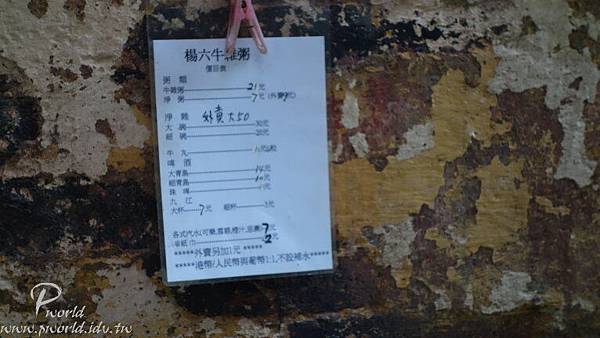 楊六牛雜粥
價目表
粥 類
牛雜粥 21元
淨 粥 7元 (外賣 元)
淨 雜 外賣大50
大 碗 30元
細 碗 20元
牛 丸
啤 酒
大青島 14元
細青島 10元
珠 啤 元
九 江
大杯 7元 細杯 3元
各式汽水(可樂,雪碧,橙汁,忌廉) 7元
紙 巾 2元
*****外賣另加1元*****
*****港幣/人民幣與葡幣1:1,不設補水*****
P world
www.pworld.idv.tw